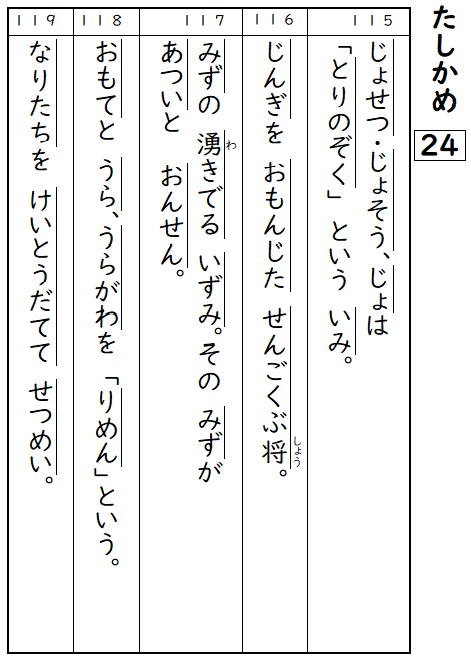 たしかめ 24
115
じょせつ・じょそう、じょは
「とりのぞく」 という いみ。
116
じんぎを おもんじた せんごくぶ将。
しょう
117
みずの 湧きでる いずみ。その みずが
わ
あついと おんせん。
118
おもてと うら、うらがわを 「りめん」という。
119
なりたちを けいとうだてて せつめい。